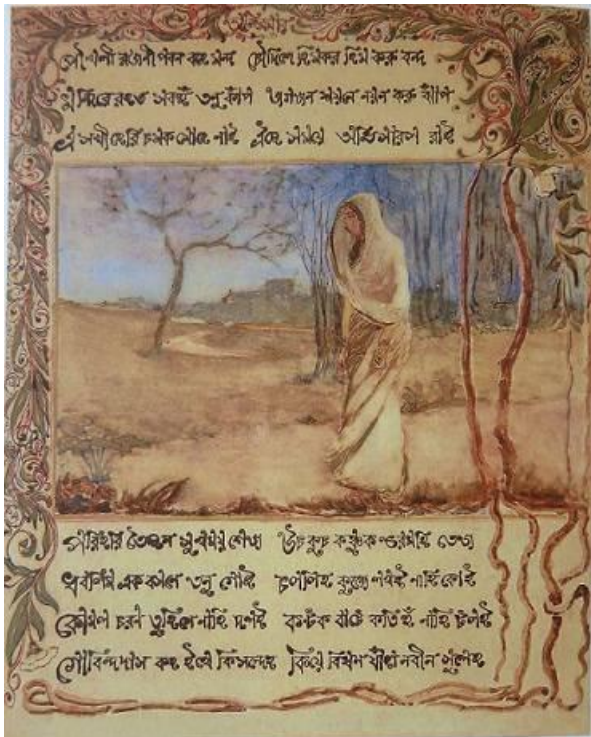 রজনী পবন বহে মন্দ চৌদিশে হিমকর হিম করু বন্দ
মন্দিরে রহত সবহুঁ তনু কাঁপ জগজন শয়নে নয়ন করু ঝাঁপ
এ সখী হেরি চমক মোহে লাই ঐছে সময়ে অভিসারল রাই
পরিহরি তৈখনে সুখময় শেজ উচ কুচ কঞ্চুক ভরমহি তেজ
ধবলিম এক বসনে তনু গোই চললিহ কুঞ্জে লখই নাহি কোই
কোমল চরণ তুহিনে নাহি দলই কণ্টক বাটে কতিহুঁ নাহি টলই
গোবিন্দদাস কহ ইথে কি সন্দেহ কিয়ে বিঘিন যাঁহা নবীন সুলেহ